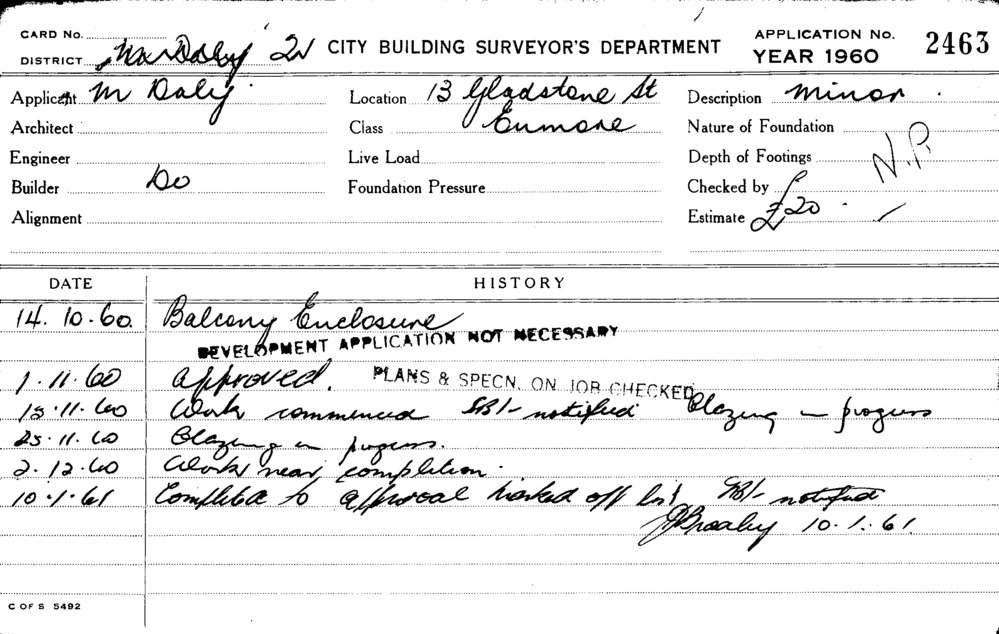 CARD No.
DISTRICT Mr Daly 2 CITY BUILDING SURVEYOR'S DEPARTMENT APPLICATION No. YEAR 1960 2463
Applicant M Daly Location 13 Gladstone St Description Minor
Architect Class Enmore Nature of Foundation
Engineer Live Load Depth of Footings N.P.
Builder Do Foundation Pressure Checked by
Alignment Estimate £20
DATE HISTORY
14.10.60. Balcony Enclosure
DEVELOPMENT APPLICATION NOT NECESSARY
1.11.60 approved. PLANS & SPECN. ON JOB CHECKED
15.11.60 Work commenced notified Glazing in progress
25.11.60 Glazing in progress.
2.12.60 Work near completion.
10.1.61 Completed to approval marked off list notified
10.1.61
C OF S 5492